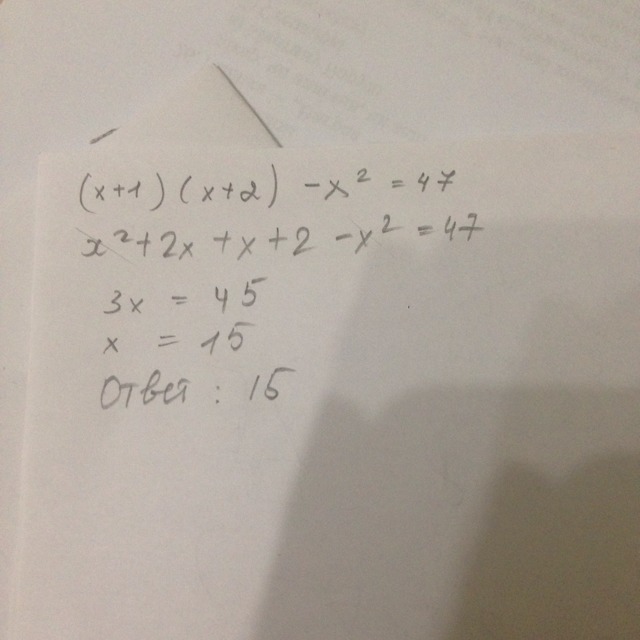 (x+1)(x+2) -x² = 47
x²+2x+x+2-x²=47
3x = 45
x = 15
Ответ: 15